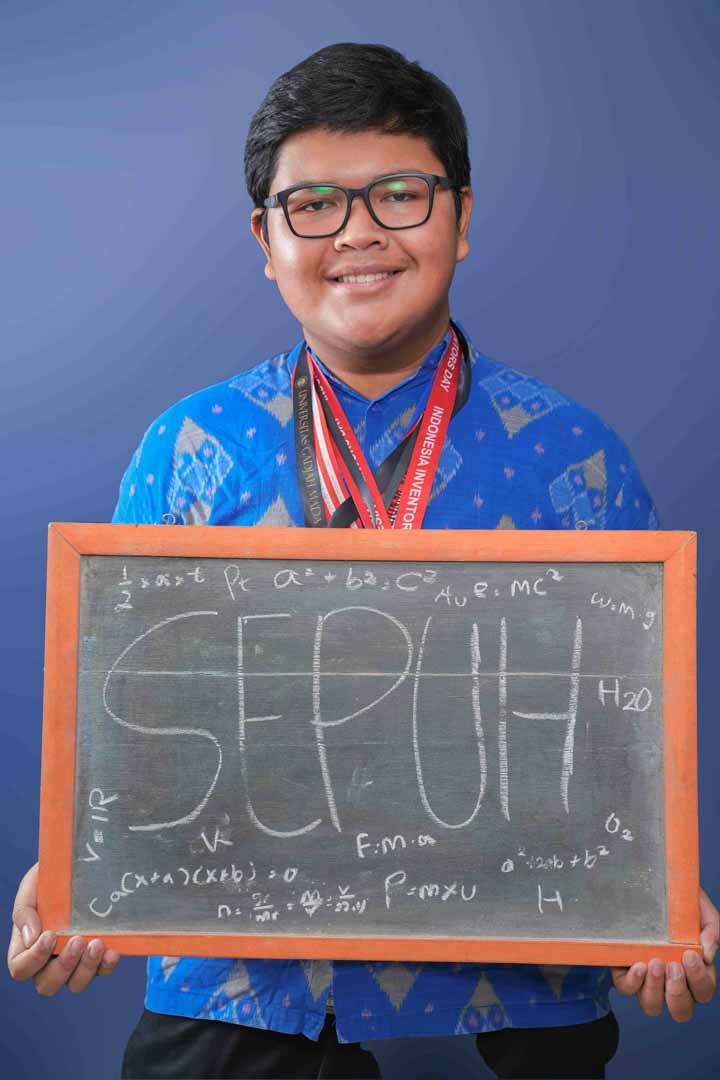 UNIVERSITAS GADJAH MADA
INDONESIA INVENTOR
TORS DAY
1/2 × a × t
Pt
a² + b² = c²
Au
e = mc²
w = m · g
SEPUH
H2O
V = IR
K
F = m · a
O2
Ca
(x+a)(x+b) = 0
a² + 2ab + b²
P = m × v
H